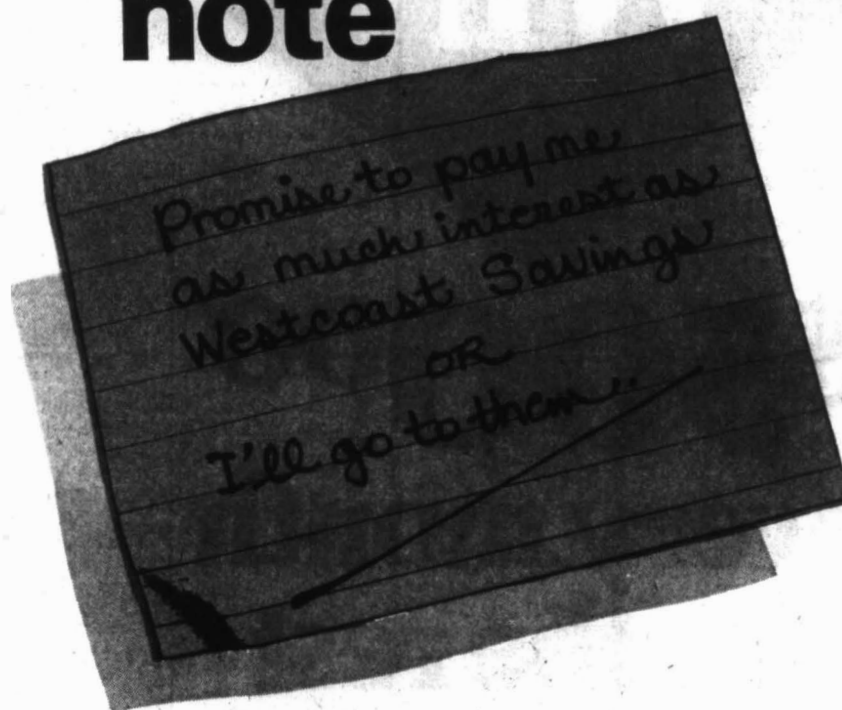 note
Promise to pay me
as much interest as
Westcoast Savings
OR
I'll go to them..